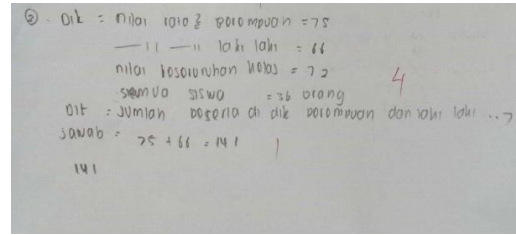 ② . Dik = nilai rata2 perempuan = 75
— 11 — 11 laki laki = 66
nilai keseluruhan kelas = 72
semua siswa = 36 orang
4
Dit = Jumlah peserta di dik perempuan dan laki laki ..?
Jawab = 75 + 66 = 141
1
141